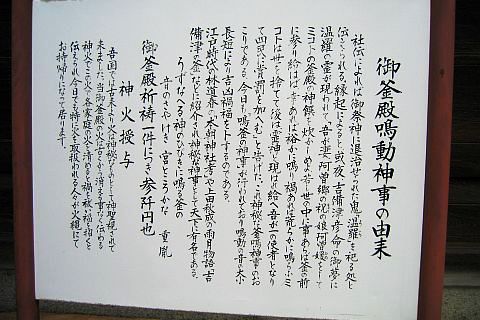 御釜殿鳴動神事の由来
社伝によれば御祭神に退治せられた鬼「温羅」を祀る処と
伝えられる。縁起によると或夜、吉備津彦命の御夢に
温羅の霊が現われて、吾が妻、阿曽郷の祝の娘阿曽媛をして
ミコトの釜殿の神饌を炊かしめよ、若し世の中に事あらば釜の前
に参り給はば幸あれば裕かに鳴り禍あれば荒らかに鳴らう。ミ
コトは世を捨てて後は霊神と現れ給へ。吾が一の使者となり
て四民に賞罰を加へむ」と告げた。これ神秘な釜鳴神事のお
こりである。今日も鳴釜の神事が行われており鳴動の音の大小
長短により吉凶禍福を卜するのである。
江戸時代の林道春の「本朝神社考」や上田秋成の雨月物語「吉
備津の釜」などに紹介され神秘な神事として天下に有名である。
うずなへる神のひびきに鳴る釜の
音のさやけき宮ところかな 重胤
御釜殿祈祷一件につき 参阡円也
神火授与
吾国では古来より火は神秘なものとして神聖視されて
来ました。当御釜殿の火は古から消える事なく伝わる
神火でこの火で各家庭の火を清めると禍を祓い福を招くと
伝えられ今日でも特に火を取扱われる人々が火縄にて
お持帰りになって居ります。